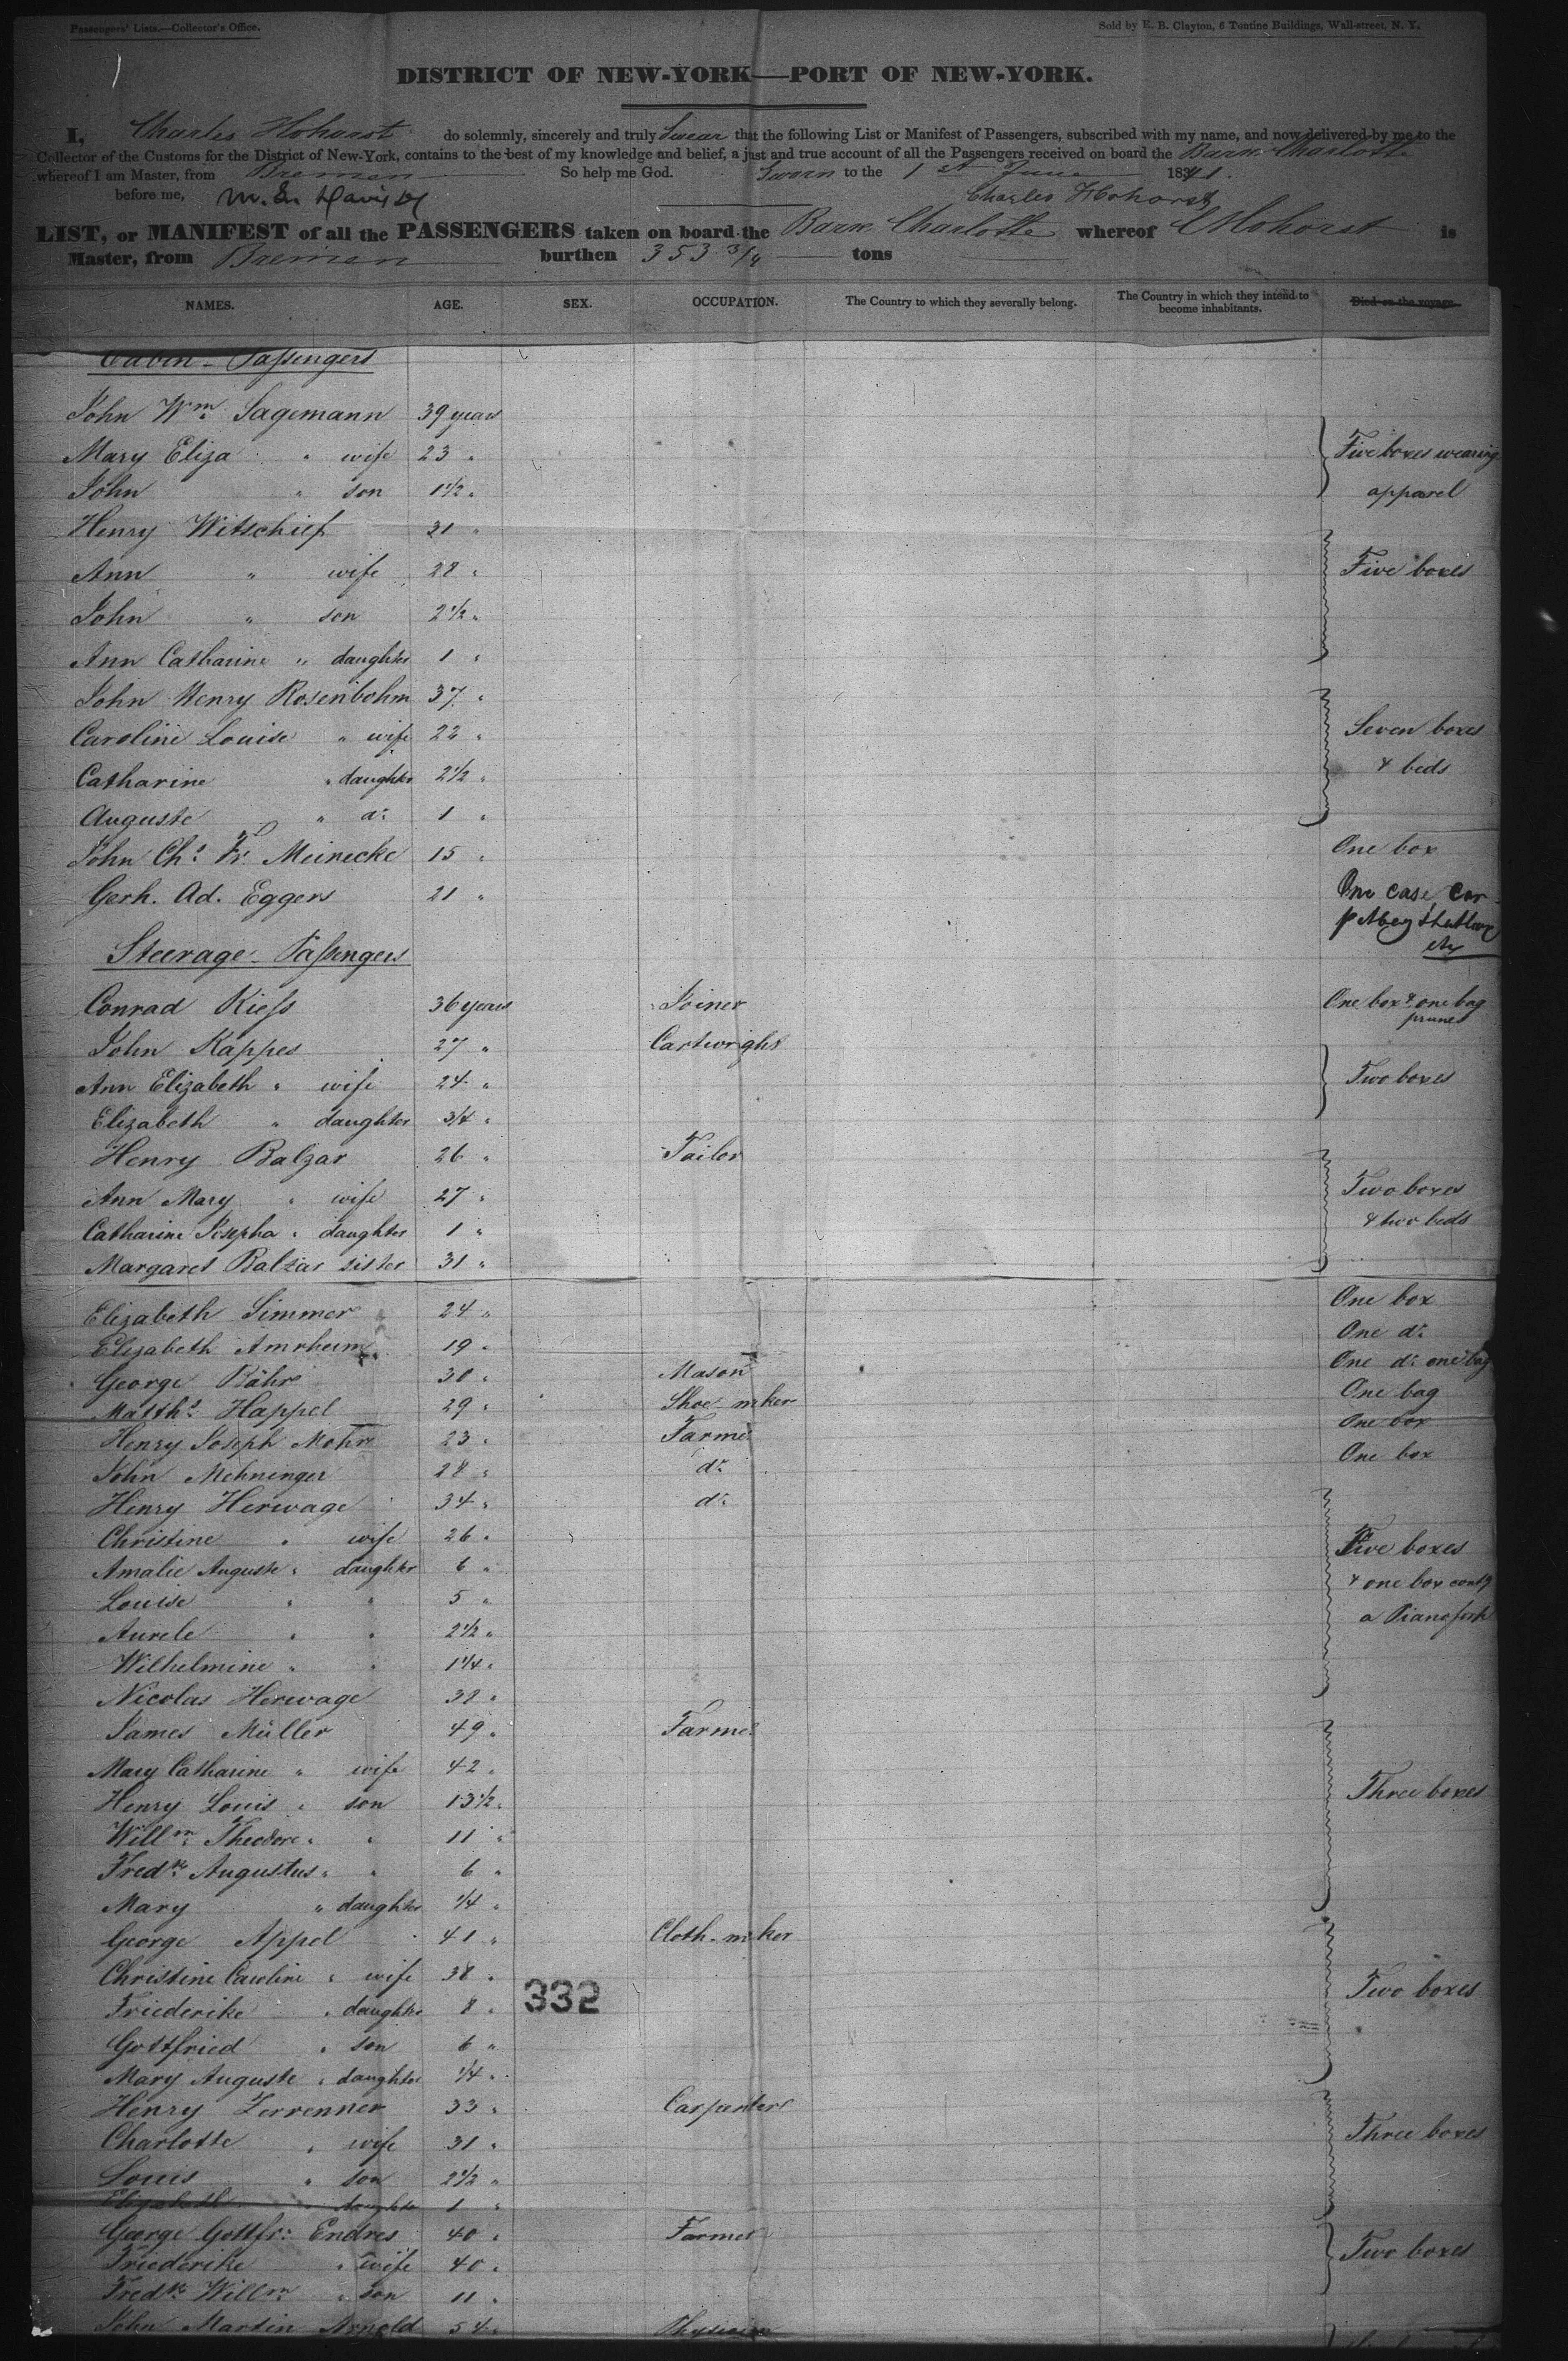 Passengers' Lists.—Collector's Office.
Sold by E. B. Clayton, 6 Tontine Buildings, Wall-street, N. Y.
DISTRICT OF NEW-YORK—PORT OF NEW-YORK.
I, Charles Hohorst do solemnly, sincerely and truly Swear that the following List or Manifest of Passengers, subscribed with my name, and now delivered by me to the
Collector of the Customs for the District of New-York, contains to the best of my knowledge and belief, a just and true account of all the Passengers received on board the Bark Charlotte
whereof I am Master, from Bremen So help me God. Sworn to the 1st June 1841.
before me, Charles Hohorst
LIST, or MANIFEST of all the PASSENGERS taken on board the Bark Charlotte whereof C Hohorst is
Master, from Bremen burthen 353 3/4 tons
NAMES. AGE. SEX. OCCUPATION. The Country to which they severally belong. The Country in which they intend to become inhabitants. Died on the voyage.
Cabin-Passengers
John Wm. Sagemann 39 years
Mary Eliza " wife 23 " Five boxes wearing
John " son 1 1/2 " apparel
Henry Witschief 31 "
Ann " wife 28 " Five boxes
John " son 2 1/2 "
Ann Catharine " daughter 1 "
John Henry Rosenbohm 37 "
Caroline Louise " wife 22 " Seven boxes
Catharine " daughter 2 1/2 " & beds
Auguste " do 1 "
John Chs. Fr. Meinecke 15 " One box
Gerh. Ad. Eggers 21 " One case, car-
Steerage-Passengers
Conrad Kiess 36 years Joiner One box & one bag
prunes
John Kappes 27 " Cartwright
Ann Elizabeth " wife 24 " Two boxes
Elizabeth " daughter 3/4 "
Henry Balzar 26 " Tailor
Ann Mary " wife 27 " Two boxes
Catharine Josepha " daughter 1 " & two beds
Margaret Balzar sister 31 "
Elizabeth Simmer 24 " One box
Elizabeth Amrheim 19 " One do
George Bähr 30 " Mason One do one bag
Matths. Happel 29 " Shoe-mker One bag
Henry Joseph Mohr 23 " Farmer One box
John Mehninger 28 " do One box
Henry Herwage 34 " do
Christine " wife 26 " Five boxes
Amalie Auguste " daughter 6 " & one box contg
Louise " " 5 " a Pianoforte
Aurele " " 2 1/2 "
Wilhelmine " " 1 1/4 "
Nicolas Herwage 38 "
James Müller 49 " Farmer
Mary Catharine " wife 42 "
Henry Louis " son 13 1/2 " Three boxes
Willm. Theodore " " 11 "
Fredk. Augustus " " 6 "
Mary " daughter 1/4 "
George Appel 41 " Cloth-mker
Christine Caroline " wife 38 " Two boxes
Friederike " daughter 8 " 332
Gottfried " son 6 "
Mary Auguste " daughter 1/4 "
Henry Zerrenner 33 " Carpenter
Charlotte " wife 31 " Three boxes
Louis " son 2 1/2 "
Elizabeth " daughter 1 "
George Gottfr. Endres 40 " Farmer
Friederike " wife 40 " Two boxes
Fredk. Willm " son 11 "
John Martin Arnold 54 " Physician